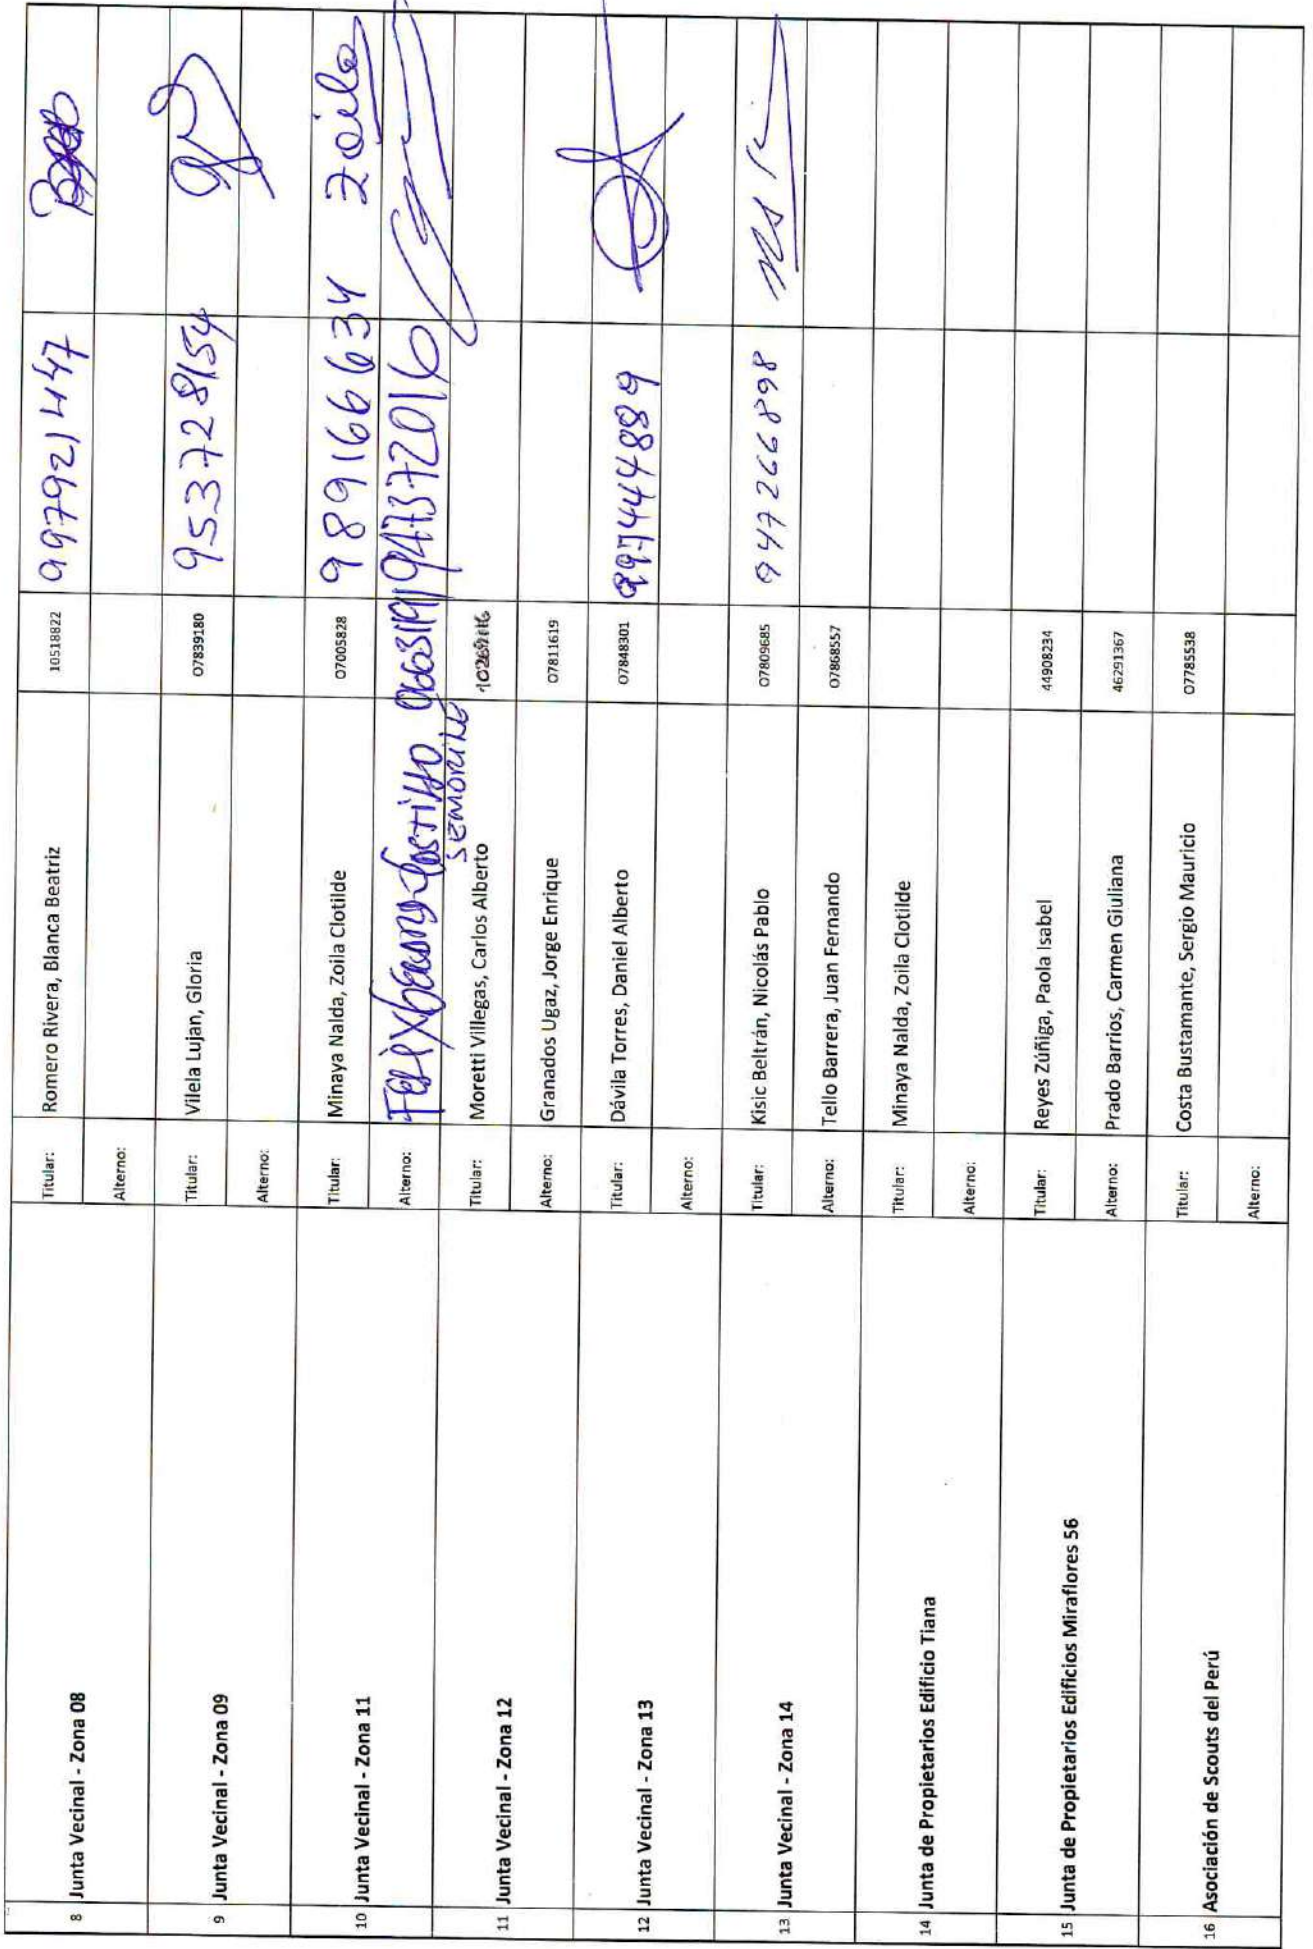 8 Junta Vecinal - Zona 08 Titular: Romero Rivera, Blanca Beatriz 10518822 997921447
Alterno:
9 Junta Vecinal - Zona 09 Titular: Vilela Lujan, Gloria 07839180 953728154
Alterno:
10 Junta Vecinal - Zona 11 Titular: Minaya Nalda, Zoila Clotilde 07005828 989166634 Zoila
Alterno: Felix Castillo 947372016
Seminario
11 Junta Vecinal - Zona 12 Titular: Moretti Villegas, Carlos Alberto
Alterno: Granados Ugaz, Jorge Enrique 07811619
12 Junta Vecinal - Zona 13 Titular: Dávila Torres, Daniel Alberto 07848301
Alterno:
13 Junta Vecinal - Zona 14 Titular: Kisic Beltrán, Nicolás Pablo 07809685 947266898
Alterno: Tello Barrera, Juan Fernando 07868557
14 Junta de Propietarios Edificio Tiana Titular: Minaya Nalda, Zoila Clotilde
Alterno:
15 Junta de Propietarios Edificios Miraflores 56 Titular: Reyes Zúñiga, Paola Isabel 44908234
Alterno: Prado Barrios, Carmen Giuliana 46291367
16 Asociación de Scouts del Perú Titular: Costa Bustamante, Sergio Mauricio 07785538
Alterno: